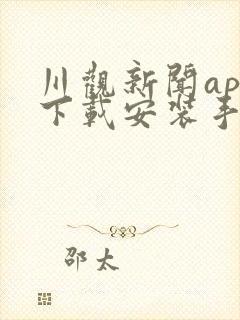 川觀新聞ap
下載安裝手
邵太